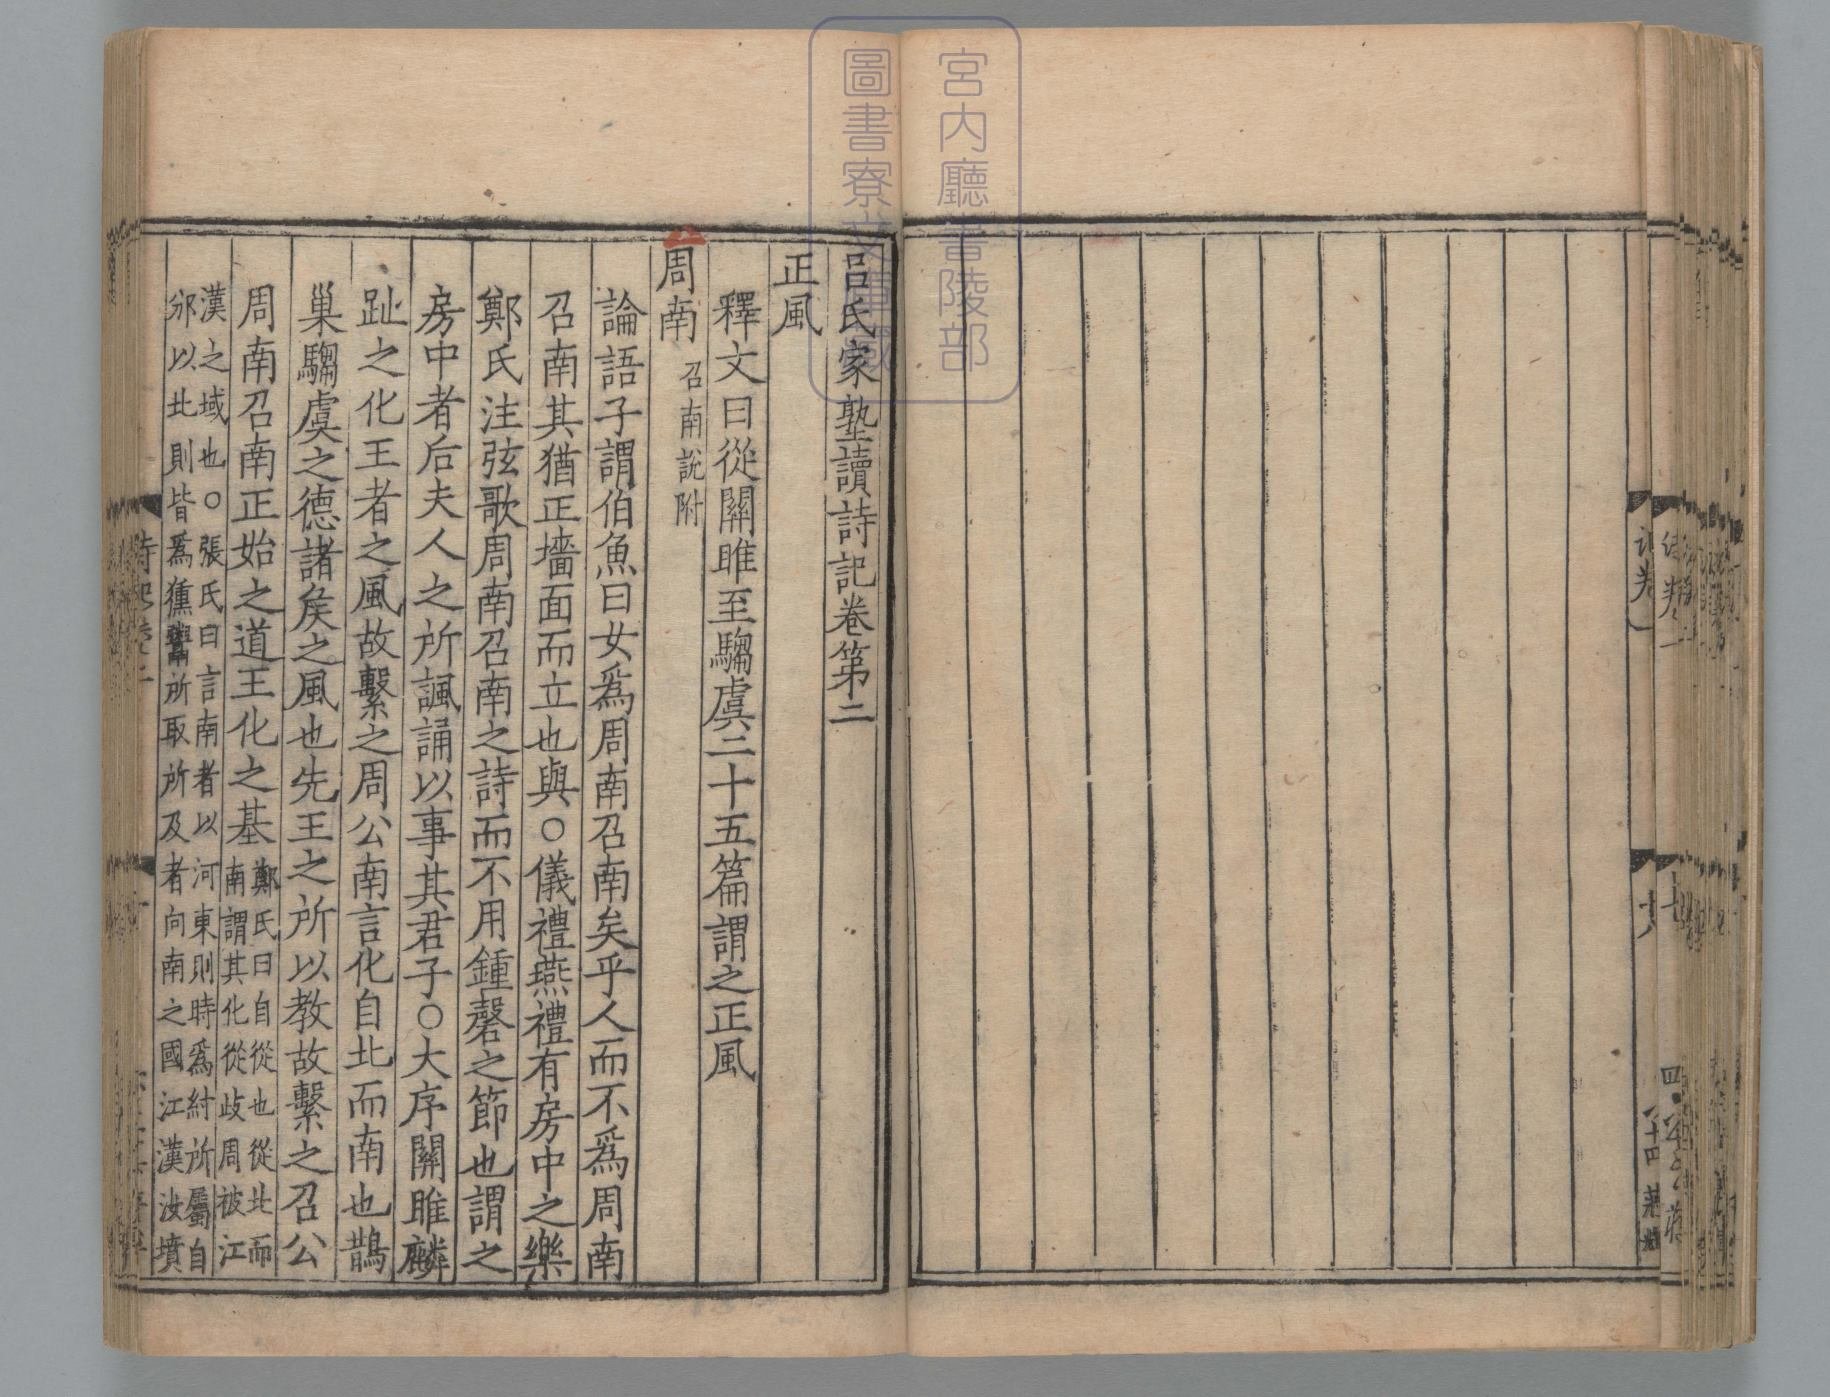 呂氏家塾讀詩記卷第二
正風
釋文曰從關雎至騶虞二十五篇謂之正風
周南 召南說附
論語子謂伯魚曰女爲周南召南矣乎人而不爲周南
召南其猶正墻面而立也與○儀禮燕禮有房中之樂
鄭氏注弦歌周南召南之詩而不用鍾磬之節也謂之
房中者后夫人之所諷誦以事其君子○大序關雎麟
趾之化王者之風故繫之周公南言化自北而南也鵲
巢騶虞之德諸矦之風也先王之所以教故繫之召公
周南召南正始之道王化之基
鄭氏曰自從也從北而
南謂其化從岐周被江
漢之域也○張氏曰言南者以河東則時爲紂所屬自
邠以北則皆爲獯鬻所取所及者向南之國江漢汝墳
宮内廳書陵部
圖書寮文庫藏